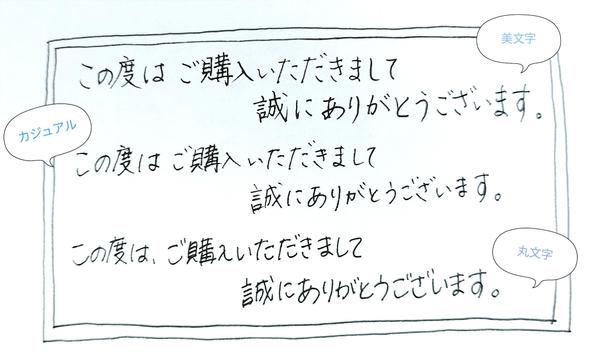 美文字
この度は ご購入いただきまして
誠にありがとうございます。
カジュアル
この度は ご購入いただきまして
誠にありがとうございます。
丸文字
この度は、ご購入いただきまして
誠にありがとうございます。